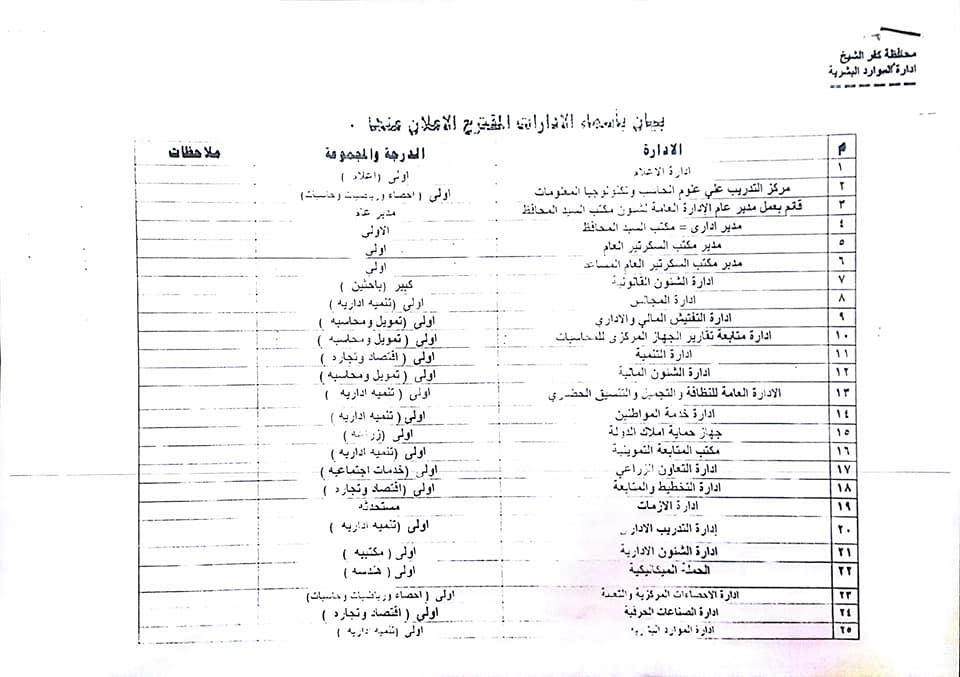 محافظة كفر الشيخ
ادارة الموارد البشرية
بيان بأسماء الادارات المقترح الاعلان عنها .
م الادارة الدرجة والمجموعة ملاحظات
١ ادارة الاعلام اولى (اعلام )
٢ مركز التدريب علي علوم الحاسب وتكنولوجيا المعلومات اولى ( احصاء ورياضيات وحاسبات)
٣ قائم بعمل مدير عام الإدارة العامة لشئون مكتب السيد المحافظ مدير عام
٤ مدير ادارى = مكتب السيد المحافظ الاولى
٥ مدير مكتب السكرتير العام اولي
٦ مدير مكتب السكرتير العام المساعد اولي
٧ ادارة الشئون القانونية كبير (باحثين )
٨ ادارة المجالس اولى (تنميه اداريه )
٩ ادارة التفتيش المالي والاداري اولى (تمويل ومحاسبه )
١٠ ادارة متابعة تقارير الجهاز المركزى للمحاسبات اولى ( تمويل ومحاسبه )
١١ ادارة التنمية اولى ( اقتصاد وتجاره )
١٢ ادارة الشئون المالية اولى ( تمويل ومحاسبه )
١٣ الادارة العامة للنظافة والتجميل والتنسيق الحضاري اولى ( تنميه اداريه )
١٤ ادارة خدمة المواطنين اولى ( تنميه اداريه )
١٥ جهاز حماية املاك الدولة اولى (زراعه )
١٦ مكتب المتابعة التموينية اولى (تنميه اداريه )
١٧ ادارة التعاون الزراعي اولى (خدمات اجتماعيه )
١٨ ادارة التخطيط والمتابعة اولى (اقتصاد وتجاره )
١٩ ادارة الازمات مستحدثه
٢٠ إدارة التدريب الادارى اولى (تنميه اداريه )
٢١ ادارة الشئون الادارية اولى ( مكتبيه )
٢٢ الحملة الميكانيكية اولى ( هندسه )
٢٣ ادارة الاحصاءات المركزية والتعبئة اولى ( احصاء ورياضيات وحاسبات)
٢٤ ادارة الصناعات الحرفية اولى ( اقتصاد وتجاره )
٢٥ ادارة الموارد البشرية اولى (تنميه اداريه )